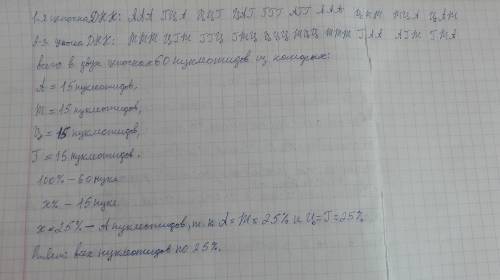 1-я цепочка ДНК: ААА ГЦА ЦЦТ ЦАГ ГГТ АГТ ААА ЦТТ ТЦА ЦАТ
2-я цепочка ДНК: ТТТ ЦГТ ГГЦ ГТЦ ЦЦЦ ЦЦЦ ТТТ ГАА АГТ ГТА
всего в двух цепочках 60 нуклеотидов из которых:
А = 15 нуклеотидов,
Т = 15 нуклеотидов,
Ц = 15 нуклеотидов,
Г = 15 нуклеотидов.
100% - 60 нукл
х% - 15 нукл
х = 25% - А нуклеотидов, т. к А = Т = 25% и Ц = Г = 25%
всех нуклеотидов по 25%.